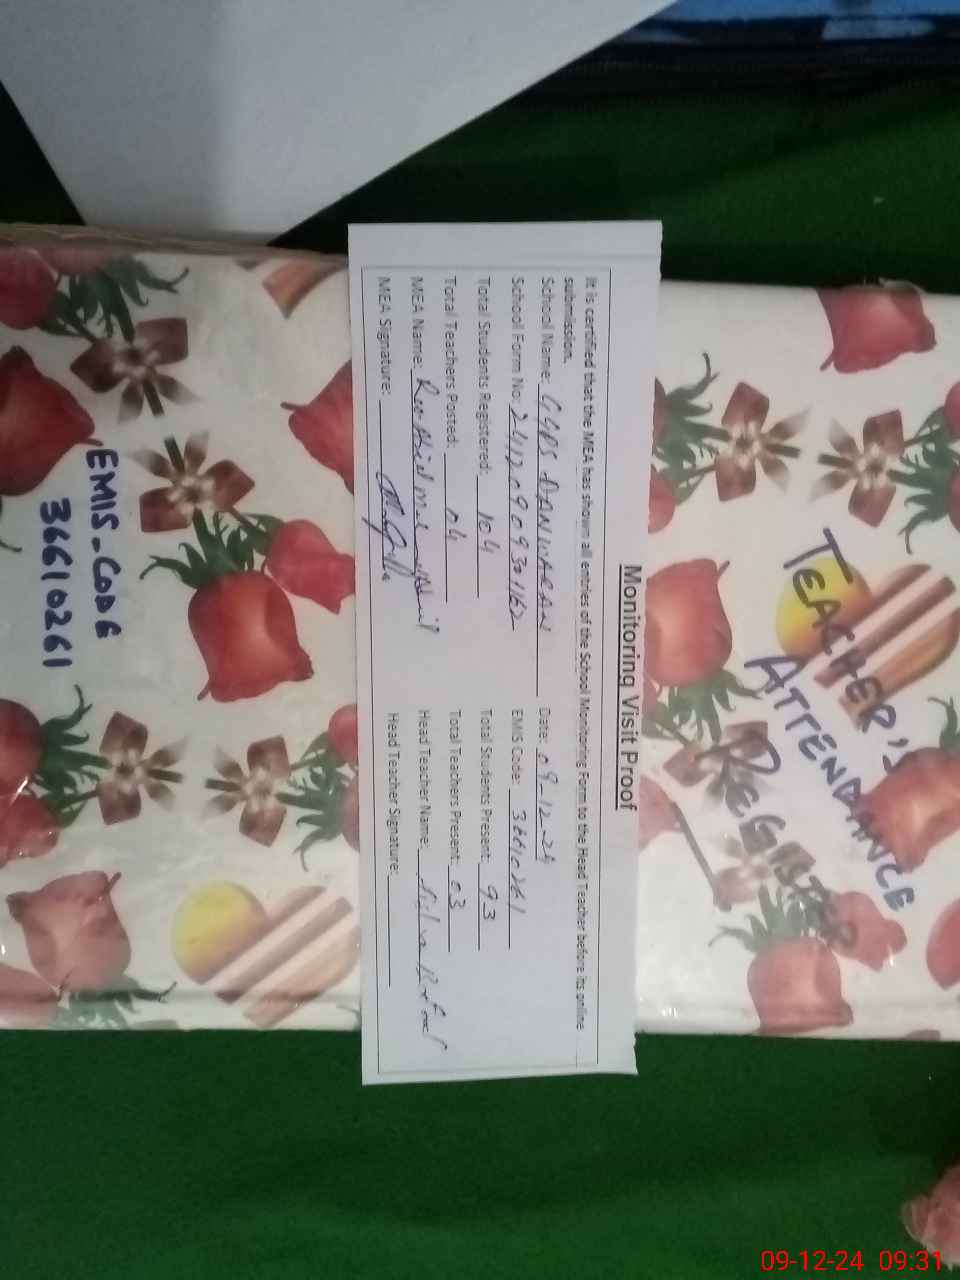 TEACHER'S
ATTENDANCE
REGISTER
Monitoring Visit Proof
It is certified that the MEA has shown all entries of the School Monitoring Form to the Head Teacher before its online
submission.
School Name: GGPS Date: 09-12-24
School Form No: EMIS Code: 36610261
Total Students Registered: 104 Total Students Present: 93
Total Teachers Posted: 04 Total Teachers Present: 03
MEA Name: Head Teacher Name:
MEA Signature: Head Teacher Signature:
EMIS-CODE
36610261
09-12-24 09:31